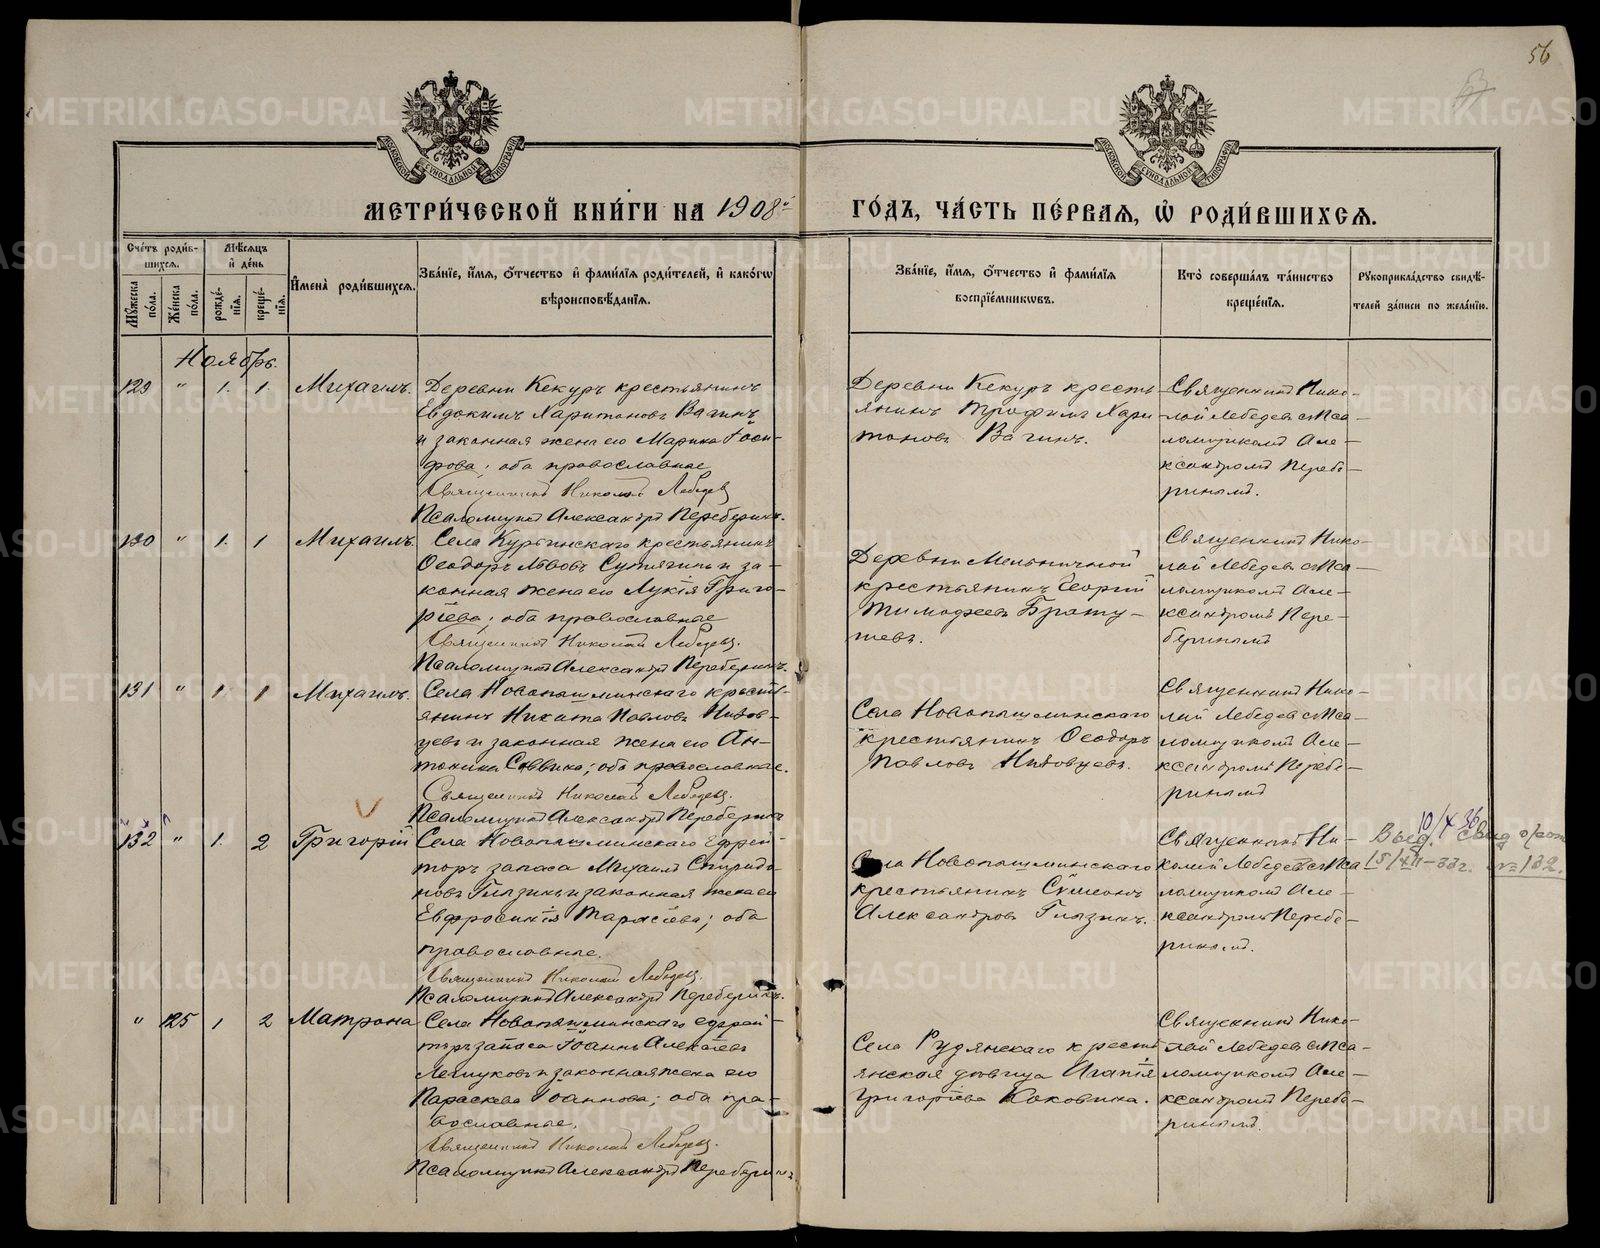 56
МЕТРИЧЕСКОЙ КНИГИ НА 1908й
ГОДЪ, ЧАСТЬ ПЕРВАЯ, Ѡ РОДИВШИХСЯ.
Счетъ родившихся.
Мужеска пола.
Женска пола.
Мѣсяцъ и день
рождения.
крещения.
Имена родившихся.
Званіе, имя, отчество и фамилія родителей, и какогѡ вѣроисповѣданія.
Званіе, имя, отчество и фамилія воспріемниковъ.
Кто совершалъ таинство крещенія.
Рукоприкладство свидѣтелей записи по желанію.
Ноябрь.
129 " 1. 1. Михаилъ.
Деревни Кекуръ крестьянинъ
Евдокимъ Харитоновъ Вагинъ
и законная жена его Марина
оба православные
Священникъ Николай Лебедевъ
Псаломщикъ Александръ Переберинъ.
Деревни Кекуръ кресть
янинъ Трофимъ Хари
тоновъ Вагинъ.
Священникъ Нико-
лай Лебедевъ съ Пса-
ломщикомъ Але-
ксандромъ Перебе-
ринымъ.
130 " 1. 1 Михаилъ.
Села Курьинскаго крестьянинъ
Ѳеодоръ Львовъ Сутягинъ и за-
конная жена его Лукія Григо-
рiева; оба православные
Священникъ Николай Лебедевъ.
Псаломщикъ Александръ Переберинъ.
Деревни Мельничной
крестьянинъ Георгій
Тимофеевъ Брату-
шевъ.
Священникъ Нико-
лай Лебедевъ съ Пса-
ломщикомъ Але-
ксандромъ Пере-
беринымъ
131 " 1. 1 Михаилъ.
Села Новопышминскаго кресть-
янинъ Никита Павловъ Низов-
цевъ и законная жена его Ан-
тонина Саввина; оба православные.
Священникъ Николай Лебедевъ.
Псаломщикъ Александръ Переберинъ
Села Новопышминскаго
крестьянинъ Ѳеодоръ
Павловъ Низовцевъ.
Священникъ Нико-
лай Лебедевъ съ Пса-
ломщикомъ Але-
ксандромъ Перебе-
ринымъ
132 " 1. 2 Григорій
Села Новопышминскаго Ефрей-
торъ запаса Михаилъ Спиридо-
новъ Глызинъ и законная жена его
Евфросинія Тарасіева; оба
православные.
Священникъ Николай Лебедевъ.
Псаломщикъ Александръ Переберинъ.
Села Новопышминскаго
крестьянинъ Сѵмеонъ
Александровъ Глызинъ.
Священникъ Ни-
колай Лебедевъ съ Пса
ломщикомъ Але-
ксандромъ Перебе-
ринымъ.
10/X 36
Выд. свид о/
15/XII-33г. № 132.
" 125 1 2 Матрона
Села Новопышминскаго ефрей-
торъ запаса Іоаннъ Алексіевъ
и законная жена его
Параскева Іоаннова; оба пра-
вославные.
Священникъ Николай Лебедевъ.
Псаломщикъ Александръ Переберинъ
Села Рудянскаго кресть
янская дѣвица Агапія
Григоріева Коковина.
Священникъ Нико-
лай Лебедевъ съ Пса-
ломщикомъ Але-
ксандромъ Перебе-
ринымъ.
METRIKI.GASO-URAL.RU